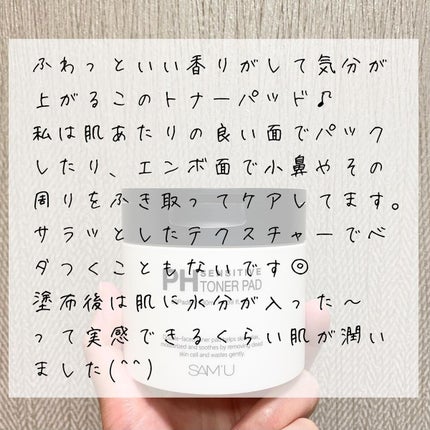 ふわっといい香りがして気分が
上がるこのトナーパッド♪
私は肌あたりの良い面でパック
したり、エンボ面で小鼻やその
周りをふき取ってケアしてます。
サラッとしたテクスチャーでベ
ダつくこともないです◎
PH SENSITIVE
TONER PAD
塗布後は肌に水分が入った〜
って実感できるくらい肌が潤い
skin cell and wastes gently.
ました(^^)
SAM'U